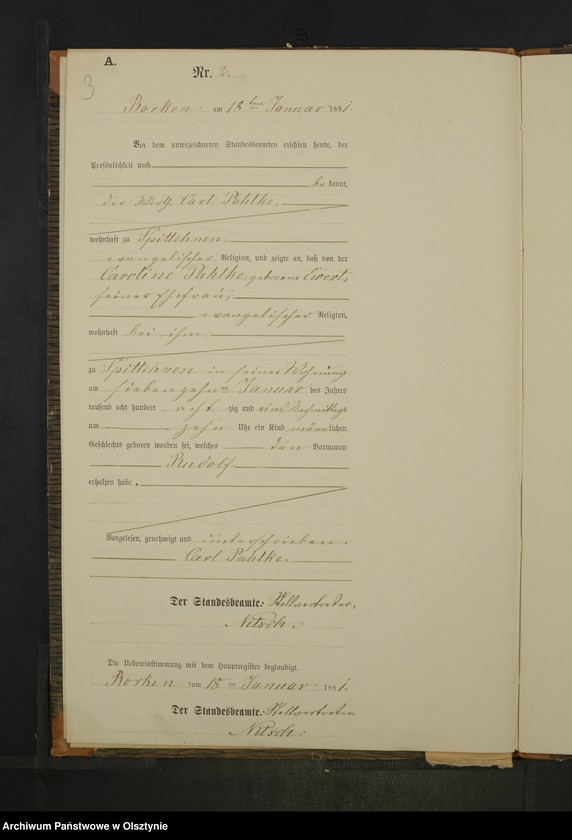 A.
3
Nr. 2.
Borken am 18ten Januar 1881.
Vor dem unterzeichneten Standesbeamten erschien heute, der
Persönlichkeit nach
bekannt,
der Carl Pahlke,
wohnhaft zu Spittehnen,
evangelischer Religion, und zeigte an, daß von der
Caroline Pahlke geborene Ewert,
seiner Ehefrau,
evangelischer Religion,
wohnhaft bei ihm
zu Spittehnen in seiner Wohnung
am siebenzehn ten Januar des Jahres
tausend acht hundert acht zig und eins Nachmittags
um zehn Uhr ein Kind männlichen
Geschlechts geboren worden sei, welches den Vornamen
Rudolf
erhalten habe.
Vorgelesen, genehmigt und unterschrieben:
Carl Pahlke.
Der Standesbeamte. Stellvertreter,
Nitsch.
Die Uebereinstimmung mit dem Hauptregister beglaubigt.
Borken am 18ten Januar 1881.
Der Standesbeamte. Stellvertreter
Nitsch.
Archiwum Państwowe w Olsztynie